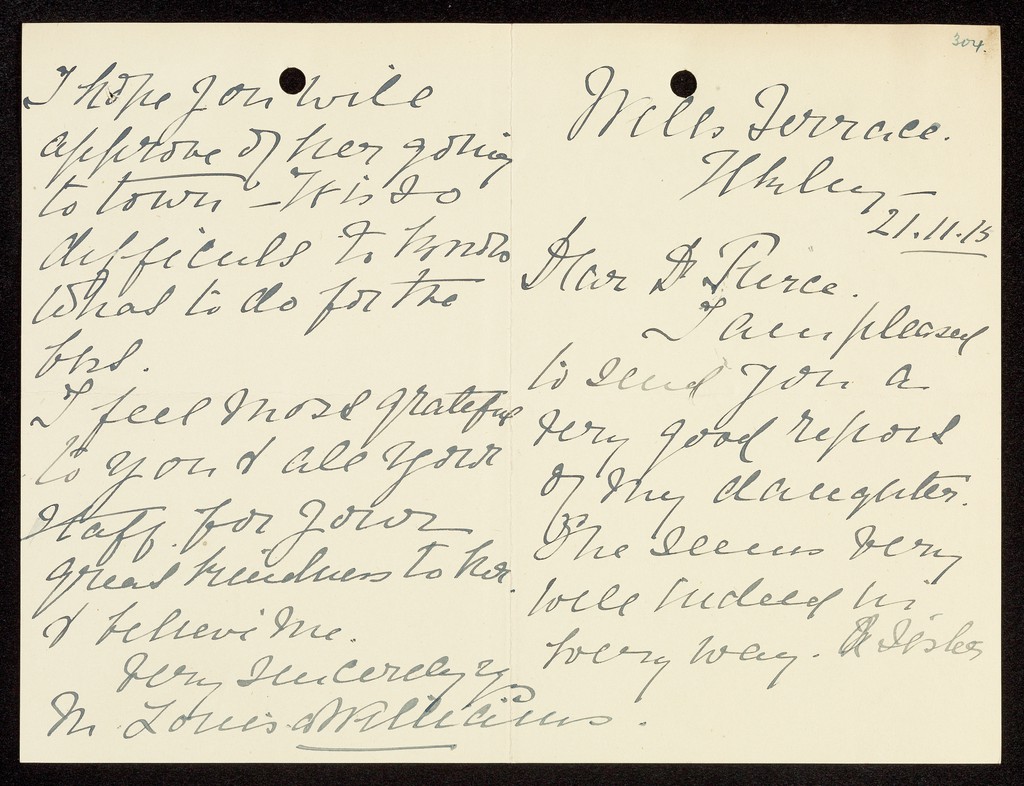 304.
Wells Terrace.
Ilkley –
21.11.15
Dear Dr Pierce.
I am pleased
to send you a
very good report
of my daughter.
She seems very
well indeed in
every way. A Sister
I hope you will
approve of her going
to town – It is so
difficult to know
what to do for the
best.
I feel most grateful
to you & all your
staff for your
great kindness to her
& believe me.
Very sincerely yrs
M. Louisa Williams.